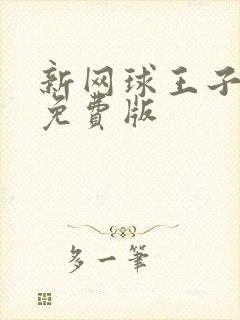 新网球王子
免費版
多一筆